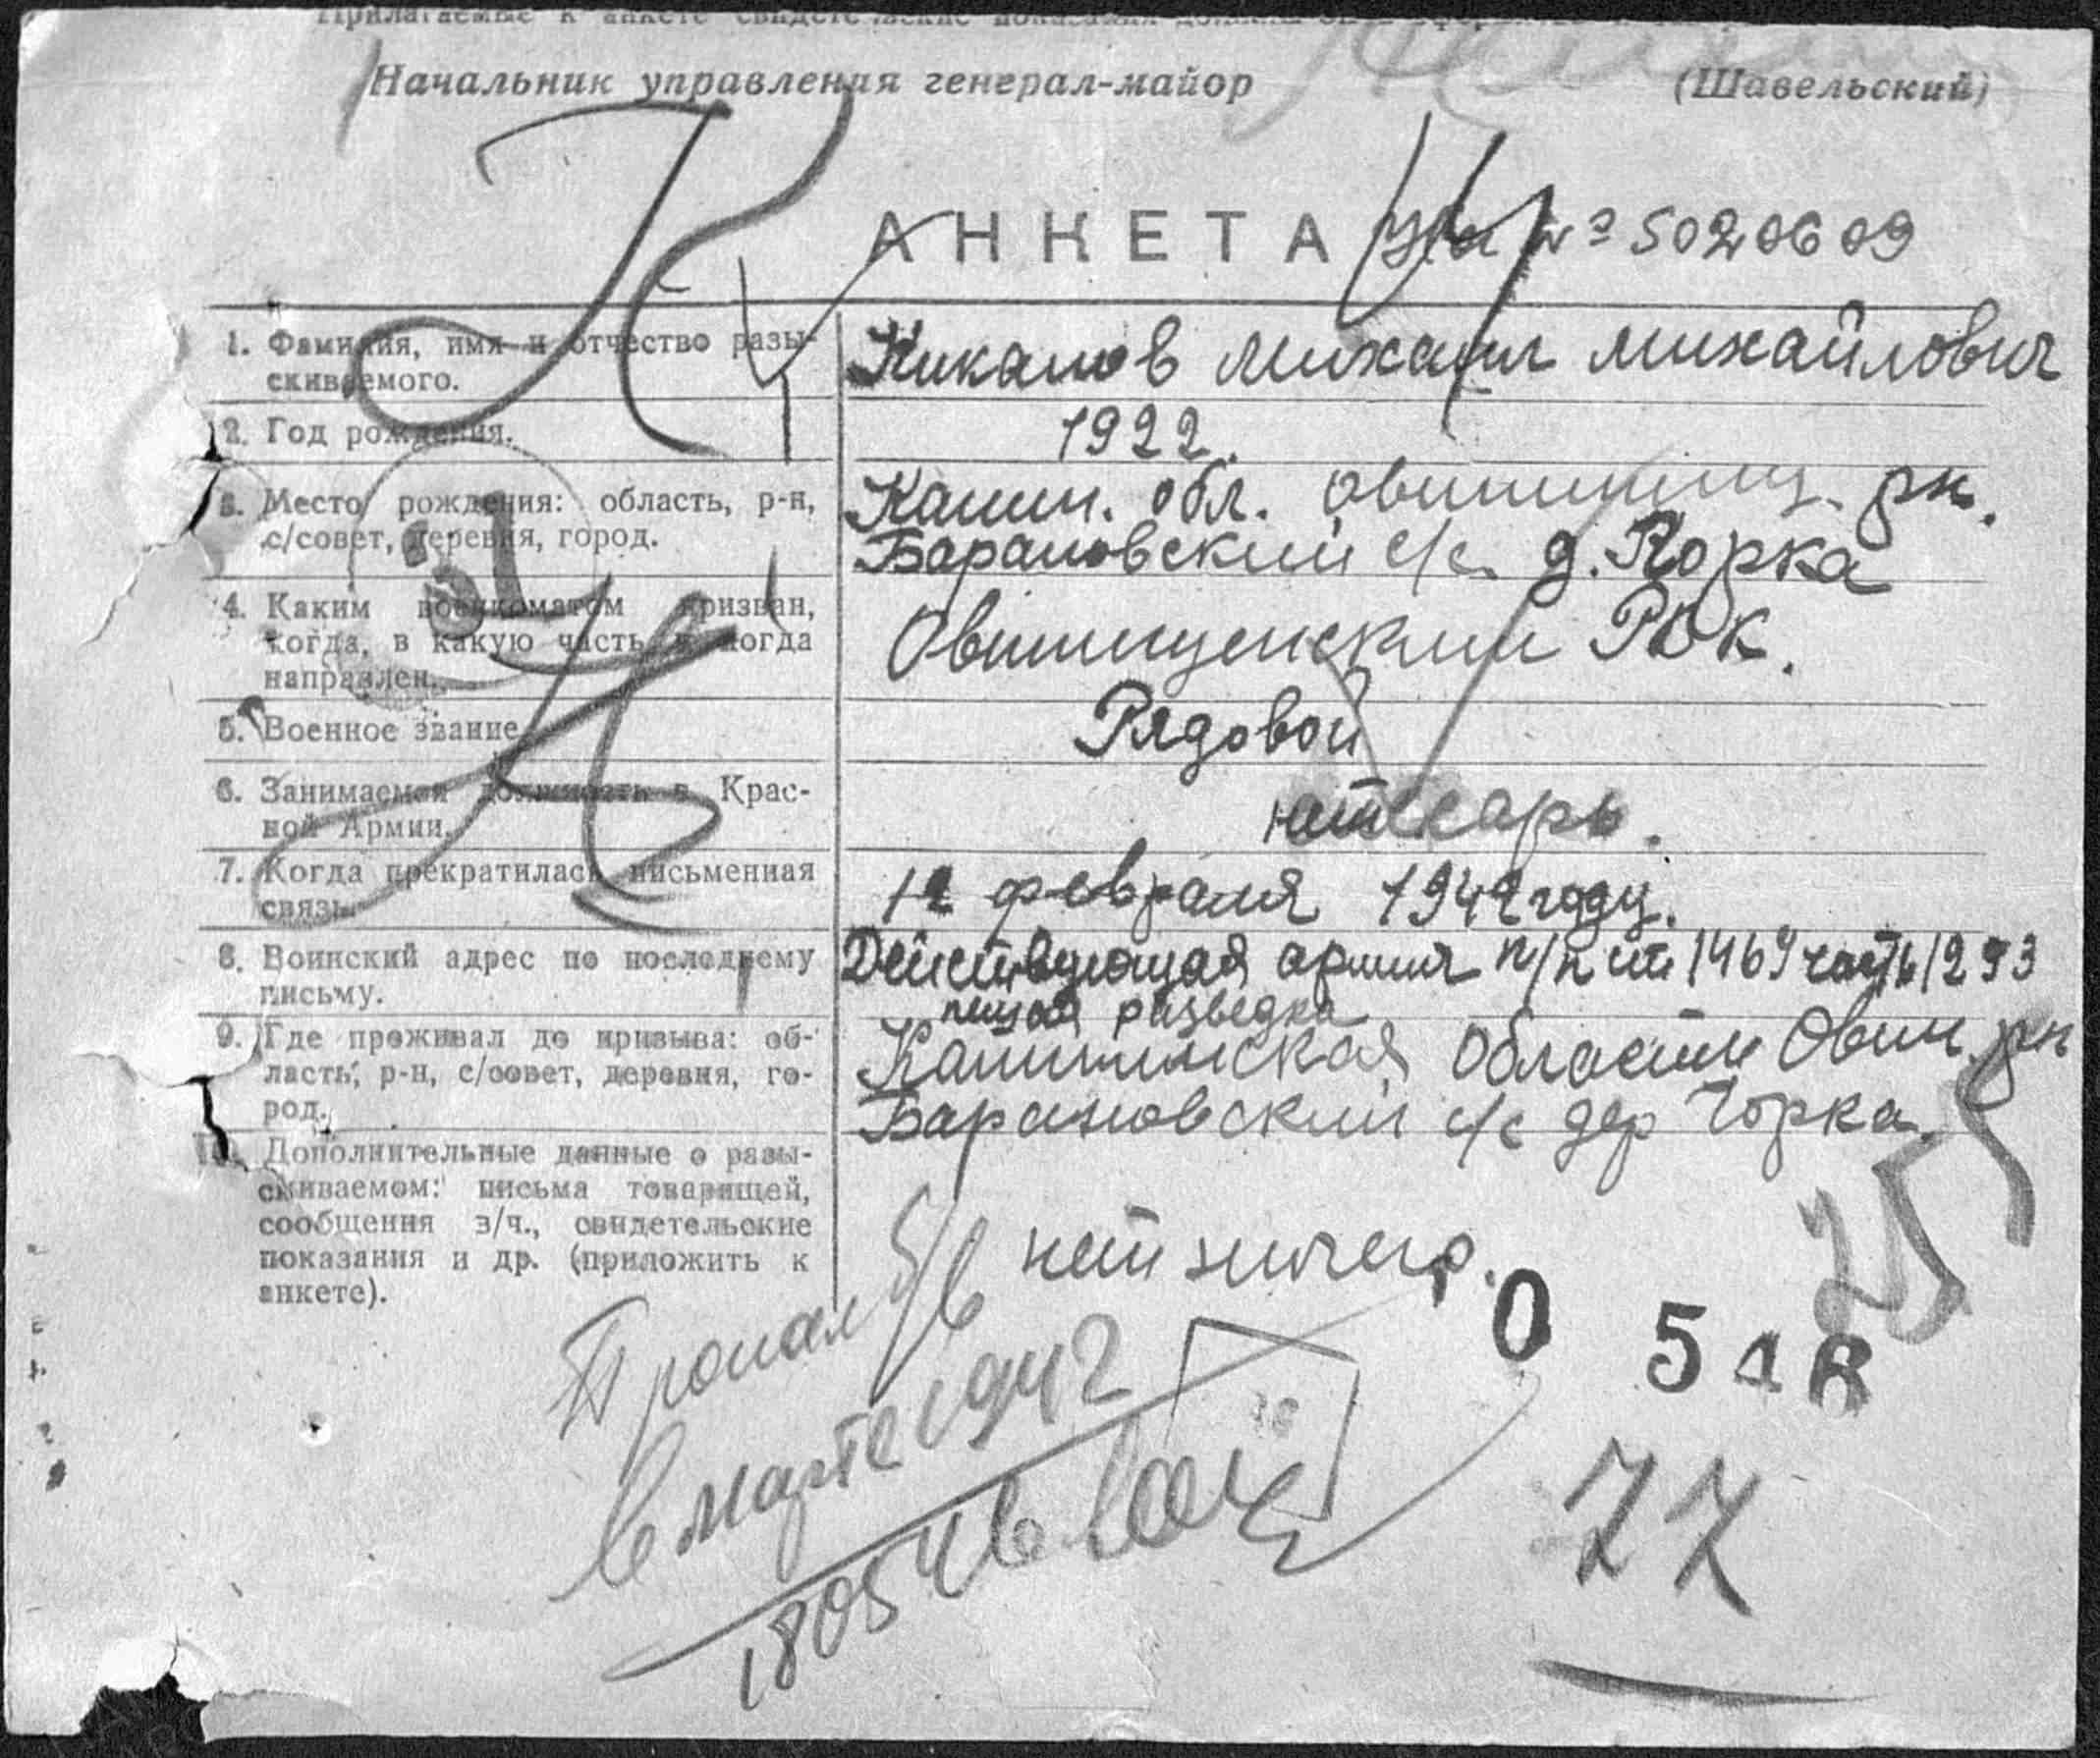 Прилагаемые к анкете свидетельские показания должны быть
Начальник управления генерал-майор (Шавельский)
АНКЕТА № 5020609
1. Фамилия, имя и отчество разыскиваемого. Киканов Михаил Михайлович
2. Год рождения. 1922.
3. Место рождения: область, р-н, Калин. обл. Овинищенск. рн.
с/совет, деревня, город. Барановский с/с. д. Горка
4. Каким военкоматом призван, Овинищенский РВК.
когда, в какую часть и когда
направлен.
5. Военное звание Рядовой
6. Занимаемая должность в Крас-
ной Армии.
7. Когда прекратилась письменная 12 февраля 1942 году.
связь.
8. Воинский адрес по последнему Действующая армия п/п 1469 часть 1293
письму. пешая разведка
9. Где проживал до призыва: об- Калининская области Овин. рн
ласть, р-н, с/совет, деревня, го- Барановский с/с дер Горка.
род.
10. Дополнительные данные о разы-
скиваемом: письма товарищей,
сообщения з/ч., свидетельские нет ничего.
показания и др. (приложить к
анкете).
Пропал б/в
в марте 1942
180546
0 54
77